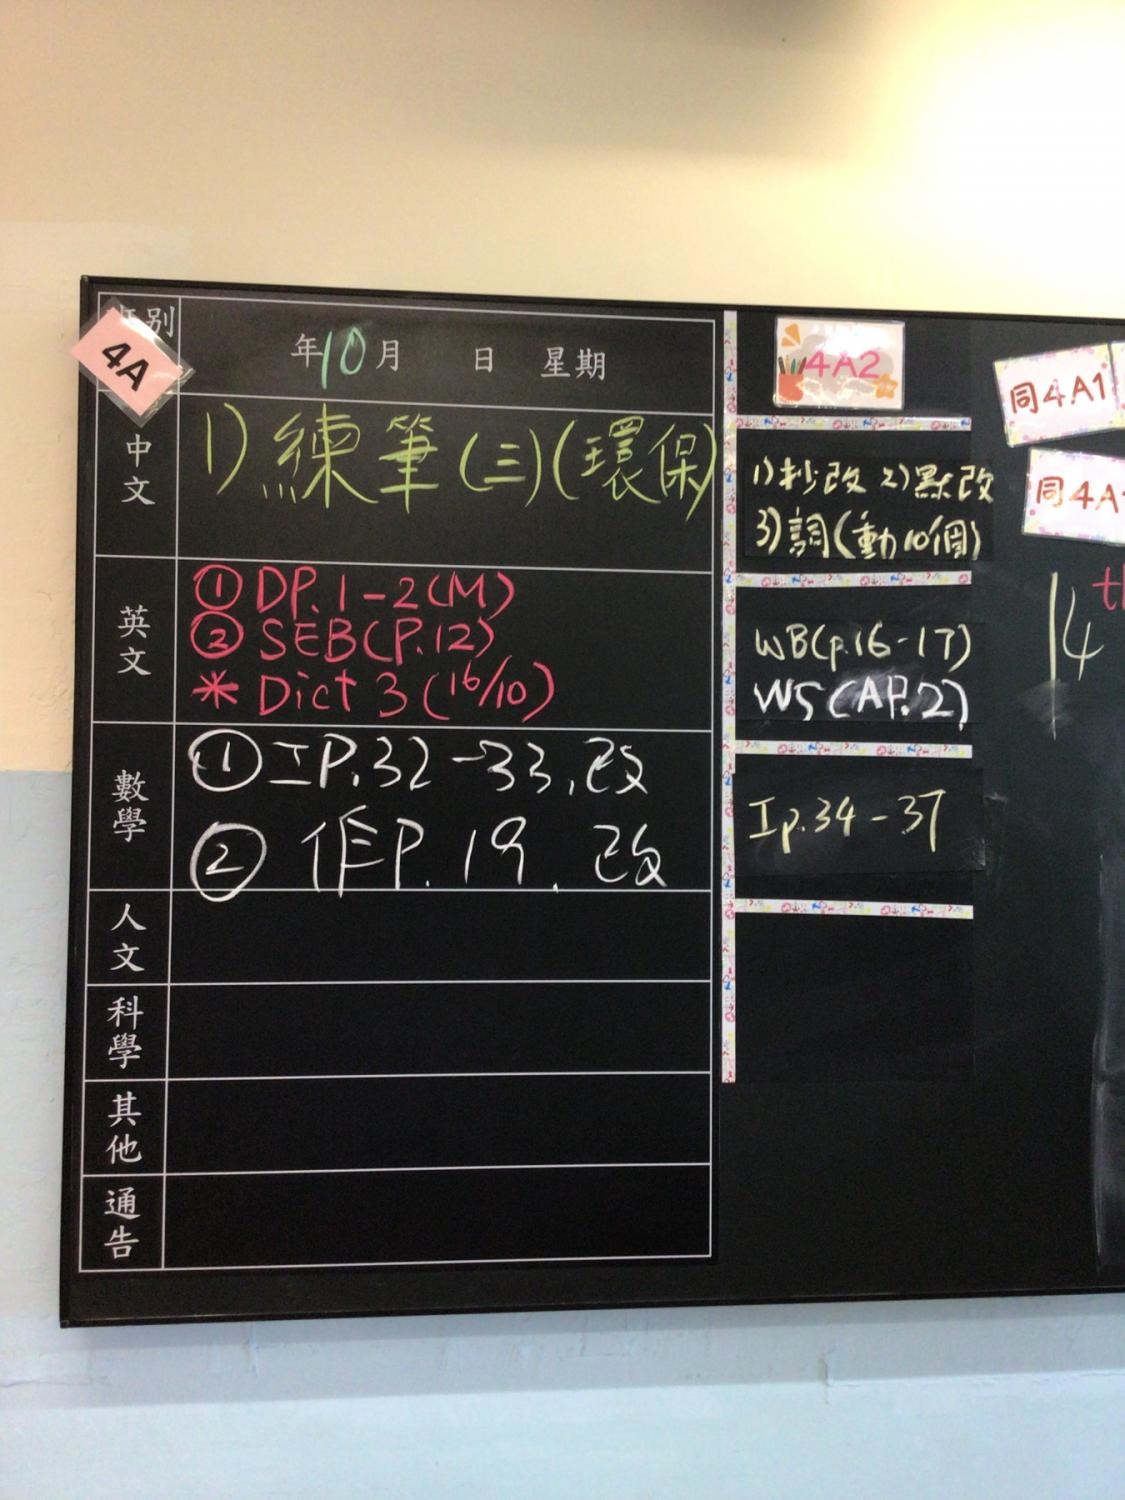 別
4A
年10月 日 星期
中文
1) 練筆(三)(環保)
英文
① DP.1-2(M)
② SEB(P.12)
* Dict 3 (16/10)
數學
① IP.32-33.改
② 作P.19.改
人文
科學
其他
通告
4A2
1)抄改 2)默改
3)詞(動10個)
WB(p.16-17)
WS(AP.2)
Ip.34-37
同4A1
同4A
14